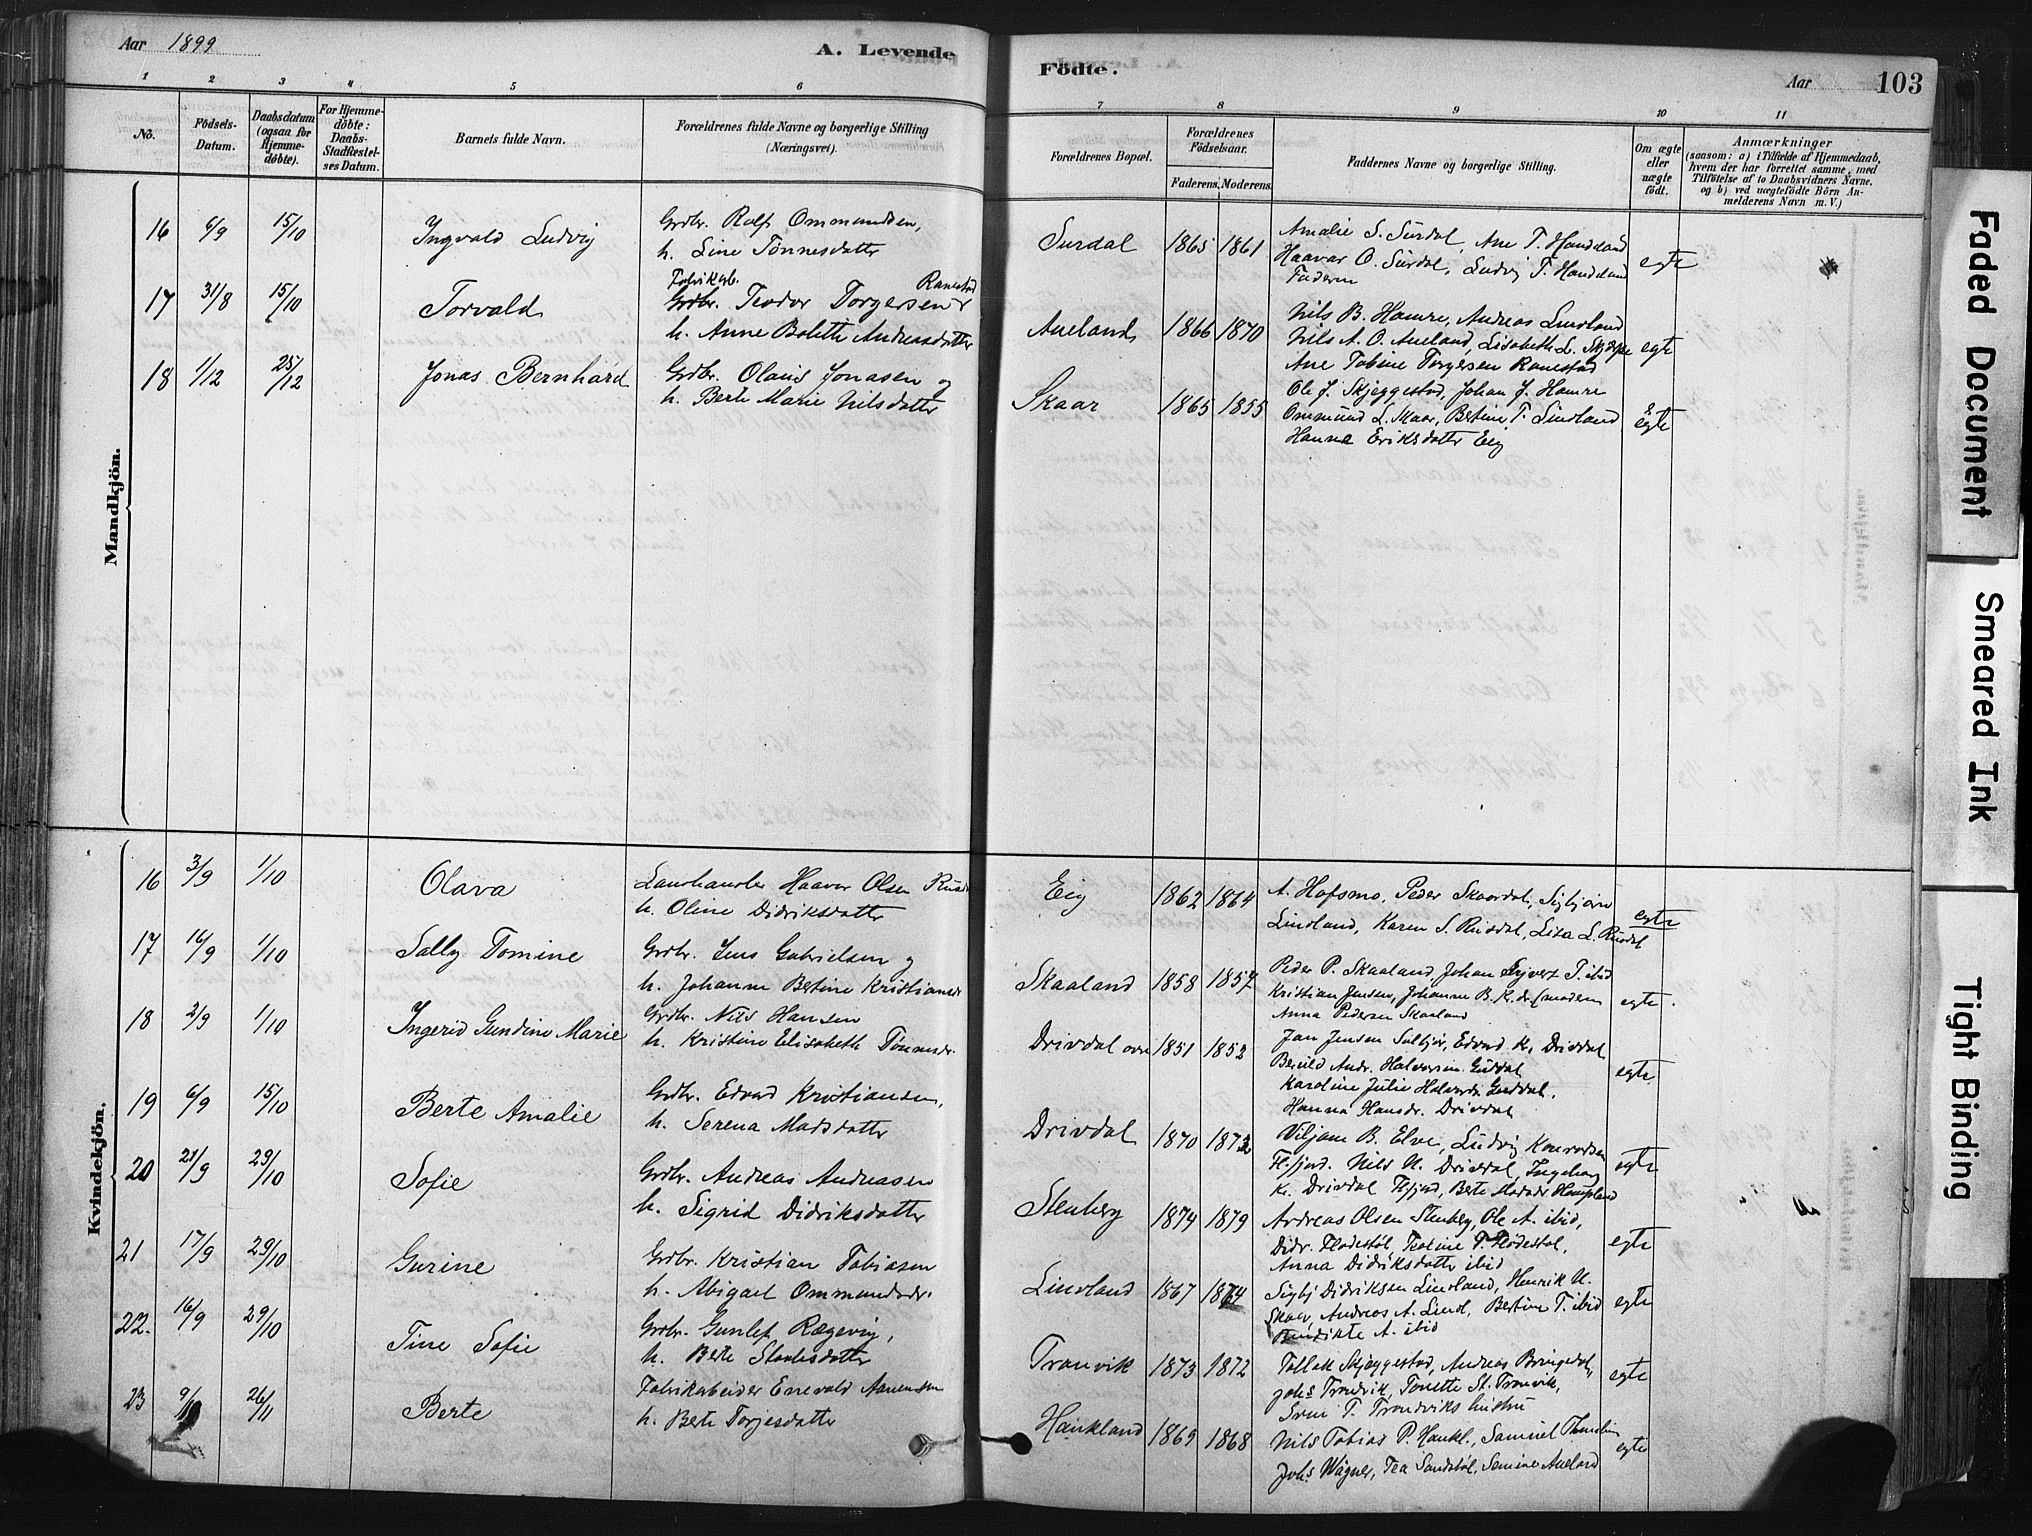 Aar 1899
A. Levende
Födte.
Aar
103
1 2 3 4 5 6 7 8 9 10 11
No.
Födsels-
Datum.
Daabsdatum
(ogsaa for
Hjemme-
döbte).
For Hjemme-
döbte:
Daabs-
Stadfæstel-
ses Datum.
Barnets fulde Navn.
Forældrenes fulde Navne og borgerlige Stilling
(Næringsvei).
Forældrenes Bopæl.
Forældrenes
Födselsaar.
Faderens. Moderens.
Faddernes Navne og borgerlige Stilling.
Om ægte
eller
uægte
födt.
Anmærkninger
(saasom: a) i Tilfælde af Hjemmedaab,
hvem der har forrettet samme, med
Tilföielse af to Daabsvidners Navne.
og b) ved uægtefödte Börn An-
melderens Navn m. V.)
Mandkjön.
16 6/9 15/10 Ingvald Ludvig
Grdbr. Rolf Ommundsen,
h. Line Tönnesdatter
Surdal 1865 1861
Amalie S. Surdal, Ane T. Haneland
Haavar O. Surdal, Ludvig T. Haneland
Faderen
egte
17 31/8 15/10 Torvald
Fabrikarb. Ranestad
Grdbr. Teodor Torgersen
h. Anne Bolette Andreasdatter
Aueland 1866 1870
Nils B. Hamre, Andreas Lindland
Nils A. O. Aueland, Lisabeth L.
Ane Tobine Torgersen Ranestad
egte
18 1/12 25/12 Jonas Bernhard
Grdbr. Olaus Jonasen og
h. Berte Marie Nilsdatter
Skaar 1865 1855
Ole J. Skjeggestad, Johan J. Hamre
Ommund L. Skaar, Bertine T. Lindland
Hanna Eriksdatter Eig
egte
Kvindekjön.
16 3/9 1/10 Olava
Landhandler Haavar Olsen
h. Oline Didriksdatter
Eig 1862 1864
A. Hofsmo, Peder Skaardal, Sigbjörn
Lindland, Karen S. Rusdal, Lisa L. Rusdal
egte
17 16/9 1/10 Sally Tomine
Grdbr. Jens Gabrielsen og
h. Johanne Bertine Kristiansdr.
Skaaland 1858 1857
Peder P. Skaaland, Johan Syvert T. ibid
Kristian Jensen, Johanne B. K. dr. (moderen
Anna Pedersen Skaaland
egte.
18 2/9 1/10 Ingerid Gundine Marie
Grdbr. Nils Hansen
h. Kristine Elisabeth Tönnesdr.
Drivdal övre 1851 1852
Jan Jensen Solbjör, Edvard K. Drivdal
Andr. Halvorsen Guddal
Karoline Julie Guddal,
Hanna Hansdr. Drivdal
egte
19 6/9 15/10 Berte Amalie
Grdbr. Edvard Kristiansen,
h. Serena Madsdatter
Drivdal 1870 1873
Viljam B. Elve, Ludvig Konradsen
Fl.fjord. Nils K. Drivdal, Ingeborg
K. Drivdal Flfjord, Berte
egte
20 21/9 29/10 Sofie
Grdbr. Andreas Andreasen
h. Sigrid Didriksdatter
Stenberg 1874 1879
Andreas Olsen Stenberg, Ole A. ibid,
Didr. Flodestöl, Teoline T. Flodestöl,
Anna Didriksdatter ibid
egte
21 17/9 29/10 Gurine
Grdbr. Kristian Tobiasen
h. Abigael Ommundsdr.
Lindland 1867 1874
Sigbj Didriksen Lindland, Henrik N.
Skaar, Andreas A. Lind., Bertine T. ibid
Bendikte A. ibid
egte
22. 16/9 29/10 Tine Sofie
Grdbr. Gunlef Rægevig,
h. Berte
Tranvik 1873 1872
Tollak Skjeggestad, Andreas Bringedal,
Johs Trondvik, Tonette St. Tronvik,
Sven T. Trondviks hustru
egte
23 9/11 26/11 Berte
Fabrikabeider Enevald Aanensen
h. Berte Torjesdatter
Haukland 1869 1868
Nils Tobias P. Haukl., Samuel
Johs Wagner, Tea Sandstöl, Semine Aueland
egte
Faded Document
Smeared Ink
Tight Binding